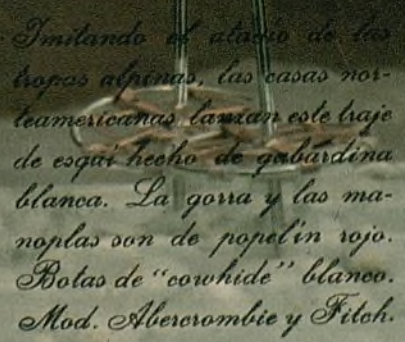 Imitando el atavío de las
tropas alpinas, las casas nor-
teamericanas lanzan este traje
de esquí hecho de gabardina
blanca. La gorra y las ma-
noplas son de popelín rojo.
Botas de “cowhide” blanco.
Mod. Abercrombie y Fitch.